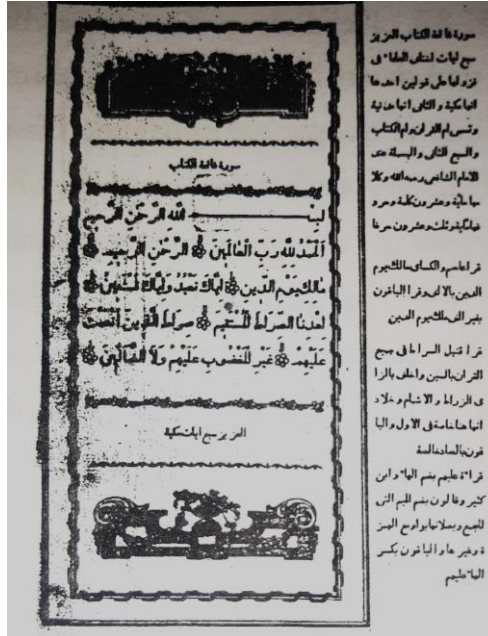 سورة فاتحة الكتاب
بِسْـــــــــمِ اللّٰهِ الرَّحْمٰنِ الرَّحِيمِ
اَلْحَمْدُ لِلّٰهِ رَبِّ الْعَالَمِينَ الرَّحْمٰنِ الرَّحِيمِ
مَالِكِ يَوْمِ الدِّينِ اِيَّاكَ نَعْبُدُ وَاِيَّاكَ نَسْتَعِينُ
اِهْدِنَا الصِّرَاطَ الْمُسْتَقِيمَ صِرَاطَ الَّذِينَ اَنْعَمْتَ
عَلَيْهِمْ غَيْرِ الْمَغْضُوبِ عَلَيْهِمْ وَلَا الضَّالِّينَ
العزيز سبع ايات مكية
سورة فاتحة الكتاب العزيز
سبع ايات اختلف العلماء فى
نزولها على قولين احدها
انها مكية و الثانى انها مدنية
وتسمى ام القران وام الكتاب
والسبع المثانى والبسملة عند
الامام الشافعى رحمه الله وكلا
مها مائة وعشرون كلمة وحرو
وثلث وعشرون حرفا
قرا عاصم والكسائى مالك يوم
الدين بالالف وقرا الباقون
بغير الف ملك يوم الدين
قرا قنبل السراط فى جميع
القران بالسين وخلف بالزا
ى الزراط والاشمام وخلاد
انها هنا خاصة فى الاول والبا
قون بالصاد خالصة
قراءة عليهم بضم الهاء وابن
كثير وقالون بضم الميم التى
للجمع مع الهمز
ة وغيرها والباقون بكسر
الهاء عليهم